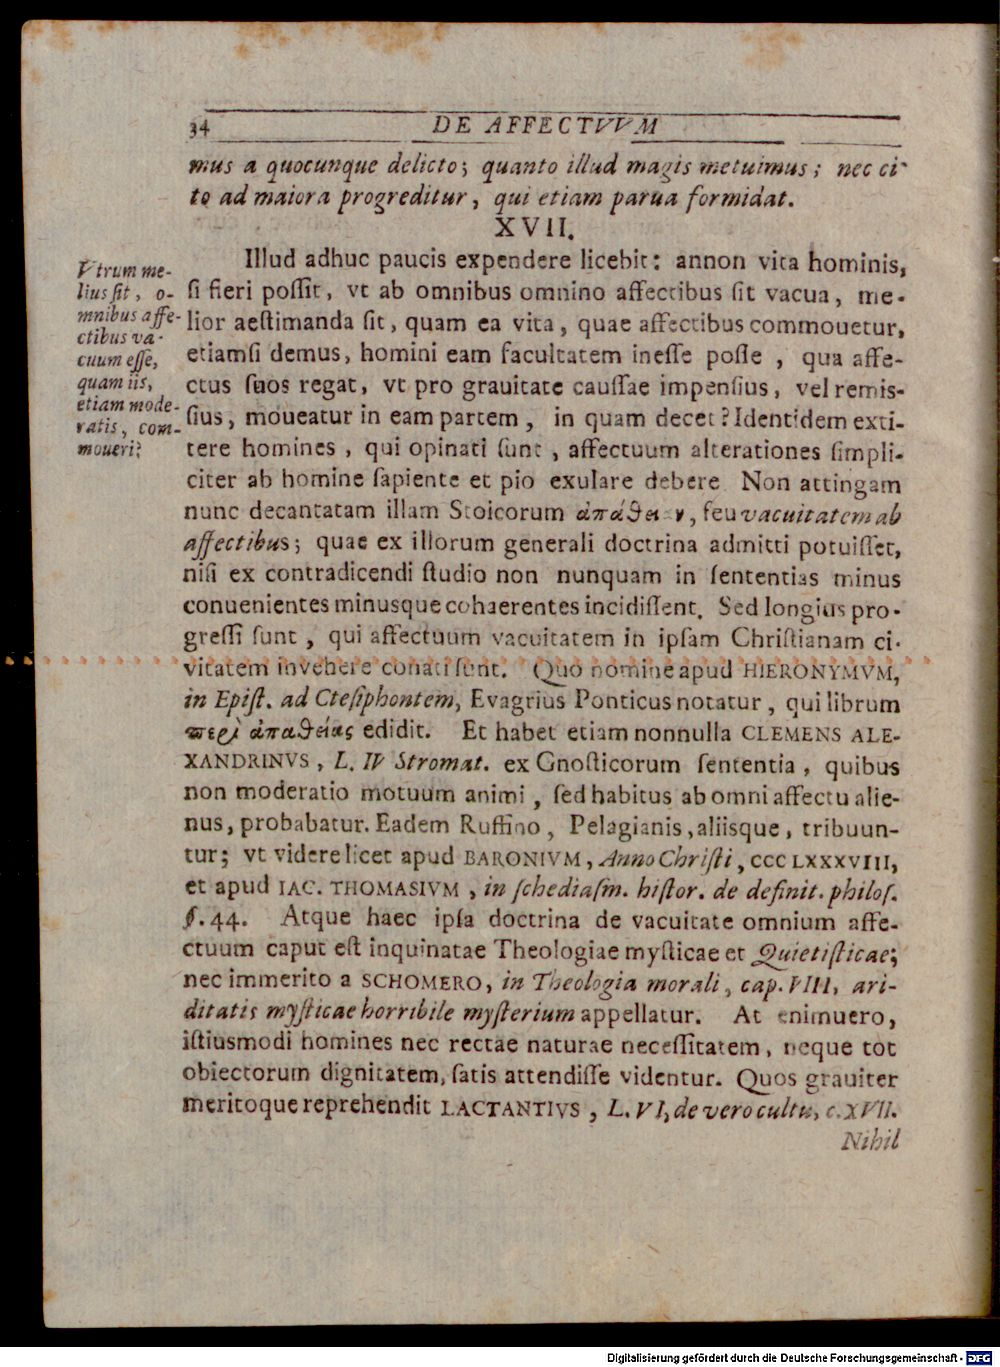 34 DE AFFECTVVM
mus a quocunque delicto; quanto illud magis metuimus; nec ci-
to ad maiora progreditur, qui etiam parua formidat.
XVII.
Illud adhuc paucis expendere licebit: annon vita hominis,
ſi fieri poſſit, vt ab omnibus omnino affectibus ſit vacua, me-
lior aeſtimanda ſit, quam ea vita, quae affectibus commouetur,
etiamſi demus, homini eam facultatem ineſſe poſſe, qua affe-
ctus ſuos regat, vt pro grauitate cauſſae impenſius, vel remiſ-
ſius, moueatur in eam partem, in quam decet? Identidem exti-
tere homines, qui opinati ſunt, affectuum alterationes ſimpli-
citer ab homine ſapiente et pio exulare debere. Non attingam
nunc decantatam illam Stoicorum ἀπάθειαν, ſeu vacuitatem ab
affectibus; quae ex illorum generali doctrina admitti potuiſſet,
niſi ex contradicendi ſtudio non nunquam in ſententias minus
conuenientes minusque cohaerentes incidiſſent. Sed longius pro-
greſſi ſunt, qui affectuum vacuitatem in ipſam Chriſtianam ci-
vitatem invehere conati ſunt. Quo nomine apud HIERONYMVM,
in Epiſt. ad Cteſiphontem, Evagrius Ponticus notatur, qui librum
περὶ ἀπαθείας edidit. Et habet etiam nonnulla CLEMENS ALE-
XANDRINVS, L. IV Stromat. ex Gnoſticorum ſententia, quibus
non moderatio motuum animi, ſed habitus ab omni affectu alie-
nus, probabatur. Eadem Ruffino, Pelagianis, aliisque, tribuun-
tur; vt videre licet apud BARONIVM, Anno Chriſti, CCCLXXXVIII,
et apud IAC. THOMASIVM, in ſchediaſm. hiſtor. de definit. philoſ.
§. 44. Atque haec ipſa doctrina de vacuitate omnium affe-
ctuum caput eſt inquinatae Theologiae myſticae et Quietiſticae;
nec immerito a SCHOMERO, in Theologia morali, cap. VIII, ari-
ditatis myſticae horribile myſterium appellatur. At enimuero,
iſtiusmodi homines nec rectae naturae neceſſitatem, neque tot
obiectorum dignitatem, ſatis attendiſſe videntur. Quos grauiter
meritoque reprehendit LACTANTIVS, L. VI, de vero cultu, c. XVII.
Nihil
Vtrum me-
lius ſit, o-
mnibus affe-
ctibus va-
cuum eſſe,
quam iis,
etiam mode-
ratis, com-
moueri?
Digitalisierung gefördert durch die Deutsche Forschungsgemeinschaft - DFG